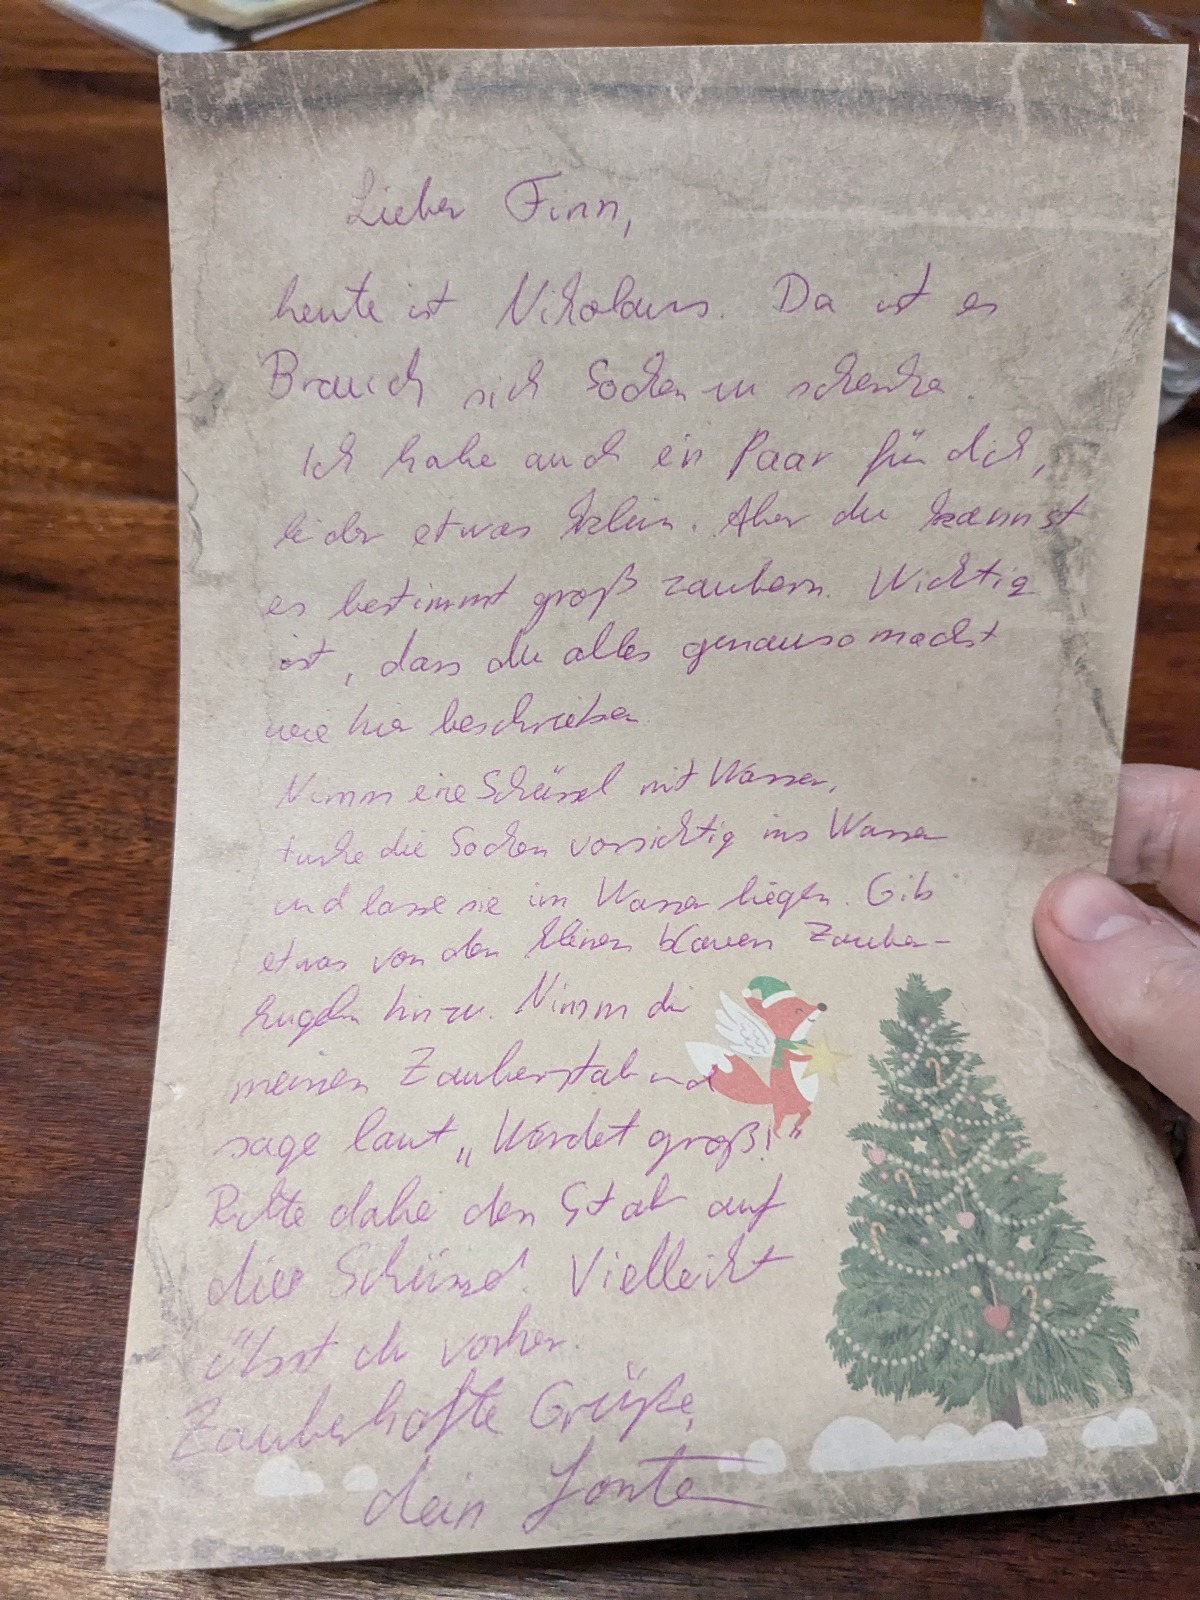 Lieber Finn,
heute ist Nikolaus. Da ist es
Brauch sich Socken zu schenke.
Ich habe auch ein Paar für dich,
leider etwas klein. Aber du kannst
es bestimmt groß zaubern. Wichtig
ist, dass du alles genauso machst
wie hier beschrieben
Nimm eine Schüssel mit Wasser,
tunke die Socken vorsichtig ins Wasser
und lasse sie im Wasser liegen. Gib
etwas von den kleinen blauen Zauber-
kugeln hinzu. Nimm dir
meinen Zauberstab und
sage laut „Werdet groß!“
Richte dabei den Stab auf
die Schüssel. Vielleicht
übst du vorher.
Zauberhafte Grüße,
dein Jonte